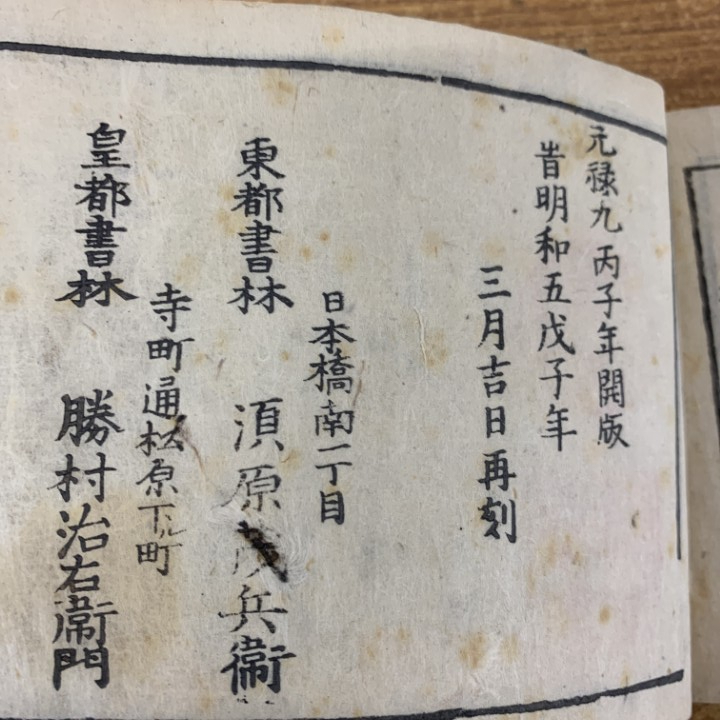 元禄九丙子年開版
旹明和五戊子年
三月吉日再刻
日本橋南一丁目
東都書林 須原茂兵衛
寺町通松原下ル町
皇都書林 勝村治右衛門